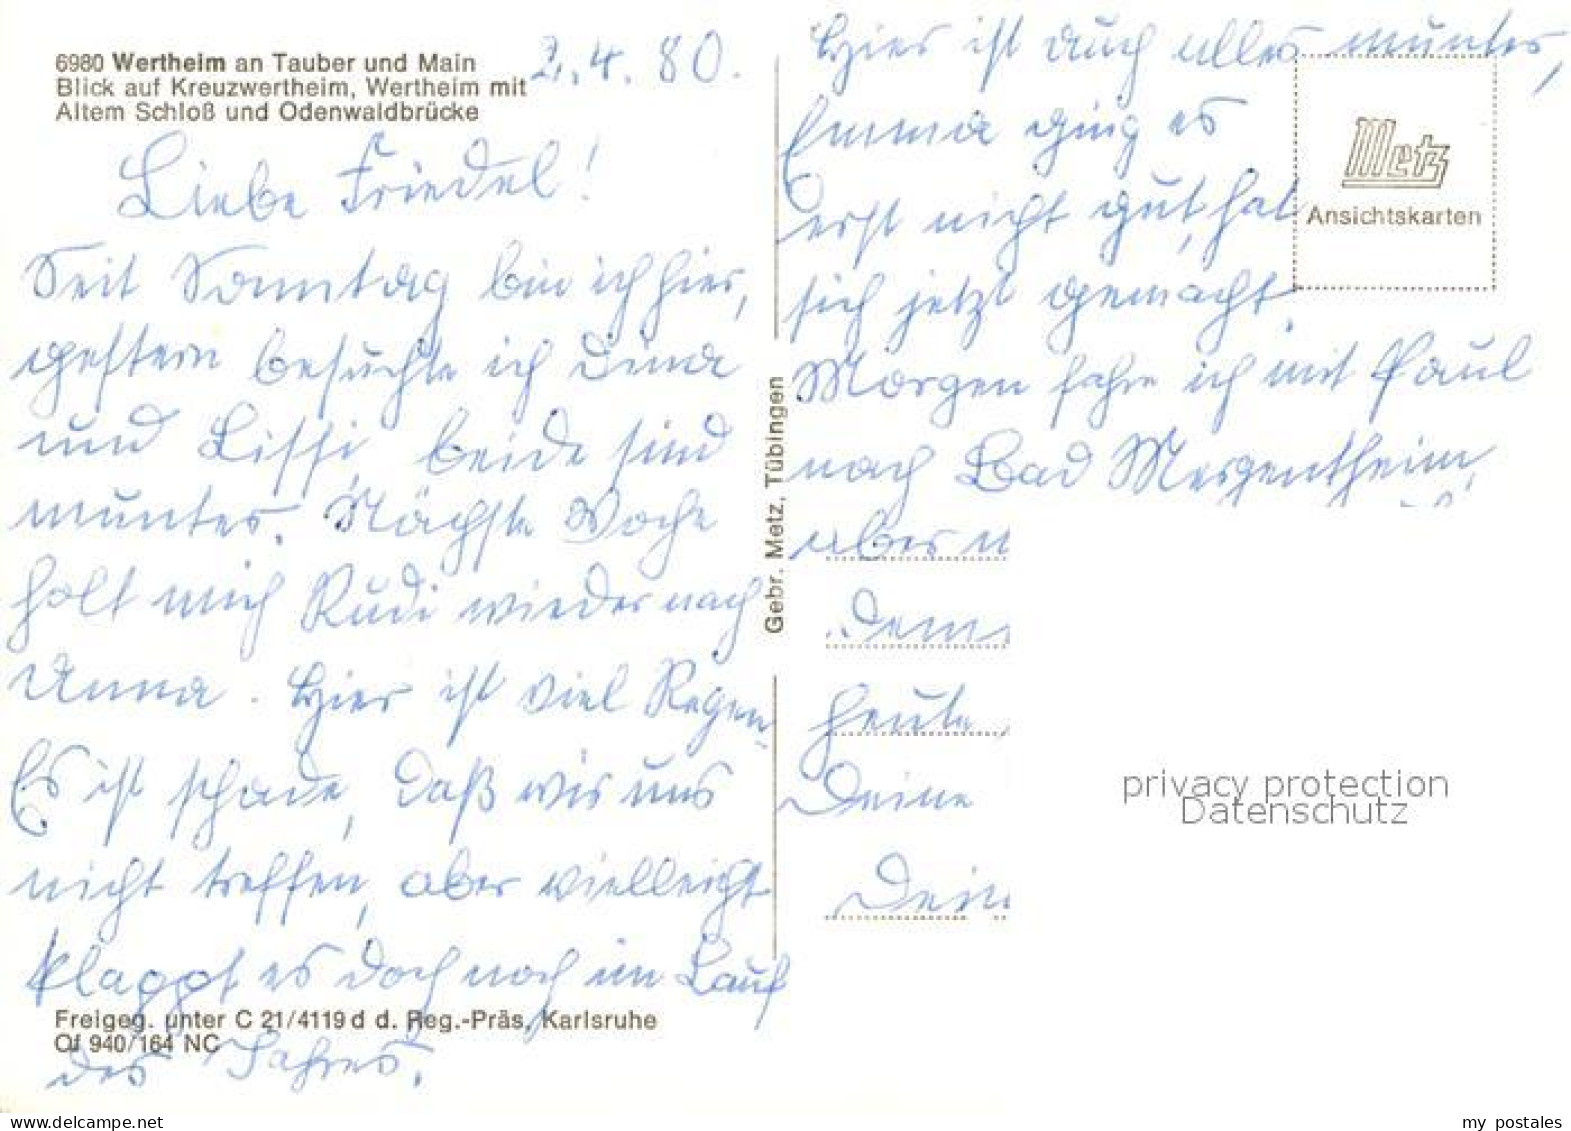 6980 Wertheim an Tauber und Main
Blick auf Kreuzwertheim, Wertheim mit
Altem Schloß und Odenwaldbrücke
2.4.80.
Liebe Friedel!
Seit Sonntag bin ich hier,
gestern besuchte ich Dina
und Lissi, beide sind
munter. Nächste Woche
holt mich Rudi wieder nach
Unna. Hier ist viel Regen
Es ist schade, daß wir uns
nicht treffen, aber vielleicht
klappt es doch noch im Lauf
des Jahres.
Freigeg. unter C 21/4119 d d. Reg.-Präs. Karlsruhe
Of 940/164 NC
Gebr. Metz, Tübingen
Hier ist auch alles munter,
Emma ging es
erst nicht gut, hat
sich jetzt gemacht.
Morgen fahre ich mit Paul
nach Bad Mergentheim,
aber
heute
Deine
Metz
Ansichtskarten
privacy protection
Datenschutz
my postales